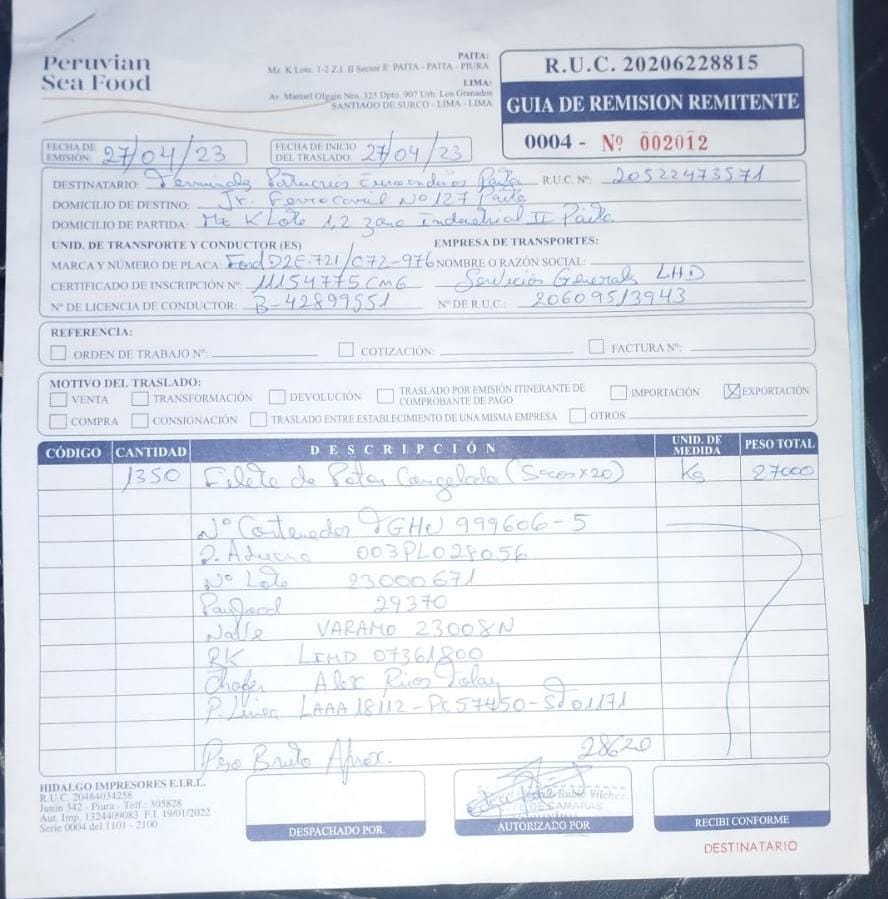 Peruvian
Sea Food
PAITA:
Mz. K Lote. 1-2 Z.I. II Sector E PAITA - PAITA - PIURA
LIMA:
Av. Manuel Olguin Nro. 325 Dpto. 907 Urb. Los Granados
SANTIAGO DE SURCO - LIMA - LIMA
R.U.C. 20206228815
GUIA DE REMISION REMITENTE
0004 - Nº 002012
FECHA DE EMISIÓN: 27/04/23
FECHA DE INICIO DEL TRASLADO: 27/04/23
DESTINATARIO: Paita R.U.C. Nº: 20522473571
DOMICILIO DE DESTINO: Jr. Ferrocarril Nº 127 Paita
DOMICILIO DE PARTIDA: Mz K Lote 1,2 zona industrial II Paita
UNID. DE TRANSPORTE Y CONDUCTOR (ES) EMPRESA DE TRANSPORTES:
MARCA Y NÚMERO DE PLACA: Ford D2E-721/C72-976 NOMBRE O RAZÓN SOCIAL:
CERTIFICADO DE INSCRIPCIÓN Nº: 11154775CMG Servicios Generales LHD
Nº DE LICENCIA DE CONDUCTOR: B-42899551 Nº DE R.U.C.: 20609513943
REFERENCIA:
ORDEN DE TRABAJO Nº: COTIZACIÓN: FACTURA Nº:
MOTIVO DEL TRASLADO:
VENTA TRANSFORMACIÓN DEVOLUCIÓN TRASLADO POR EMISIÓN ITINERANTE DE COMPROBANTE DE PAGO IMPORTACIÓN EXPORTACIÓN
COMPRA CONSIGNACIÓN TRASLADO ENTRE ESTABLECIMIENTO DE UNA MISMA EMPRESA OTROS
CÓDIGO CANTIDAD DESCRIPCIÓN UNID. DE MEDIDA PESO TOTAL
1350 Filete de Pota Congelado (Sacos x 20) Kg 27000
Nº Contenedor TGHU 999606-5
P. Aduana 003PL028056
Nº Lote 23000671
Payload 29370
Nave VARAMO 23008N
BK LIMD 07361800
Chofer Alex Rios
P. Linea LAAA18112-PC57450-ST01171
Peso Bruto Aprox. 28620
HIDALGO IMPRESORES E.I.R.L.
R.U.C. 20484034258
Junin 342 - Piura - Telf.: 305828
Aut. Imp. 1324409083 F.I. 19/01/2022
Serie 0004 del 1101 - 2100
Rubio Vilchez
DE CAMARAS
DESPACHADO POR
AUTORIZADO POR
RECIBI CONFORME
DESTINATARIO